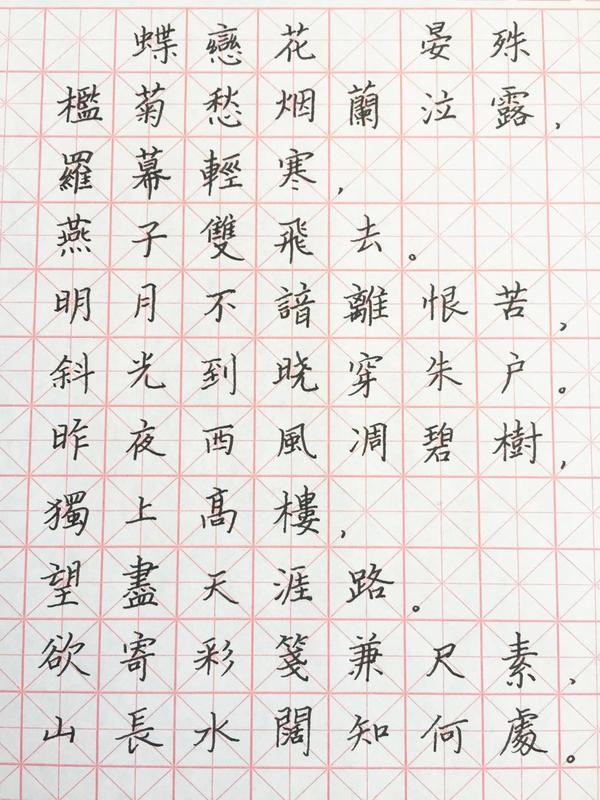 蝶戀花 晏殊
檻菊愁烟蘭泣露，
羅幕輕寒，
燕子雙飛去。
明月不諳離恨苦，
斜光到曉穿朱户。
昨夜西風凋碧樹，
獨上高樓，
望盡天涯路。
欲寄彩箋兼尺素，
山長水闊知何處。